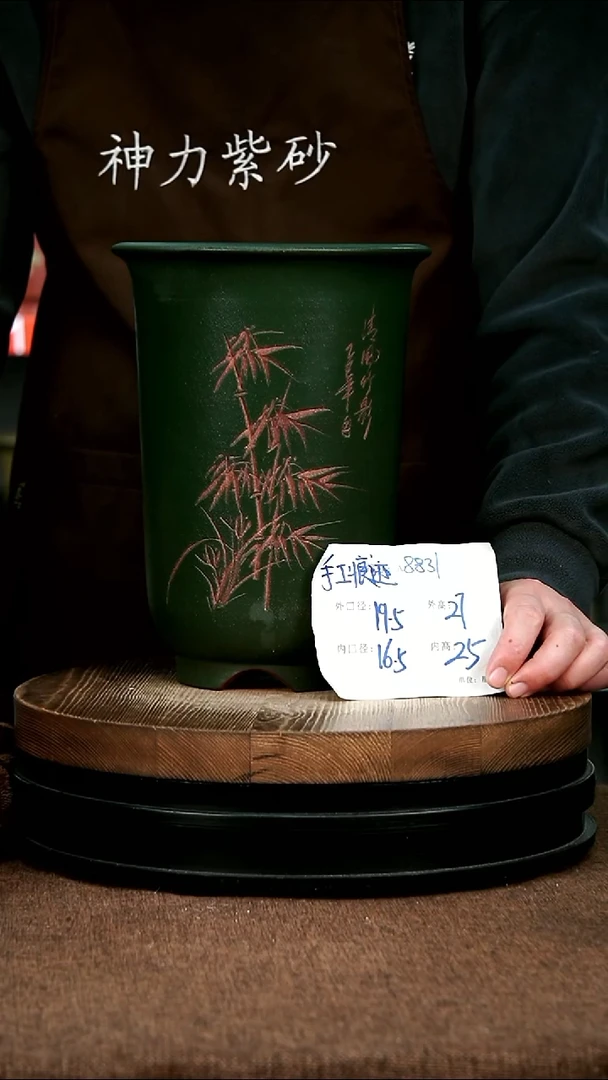 神力紫砂
清风竹影
手工痕迹 8831
外口径: 19.5 外高: 27
内口径: 16.5 内高: 25